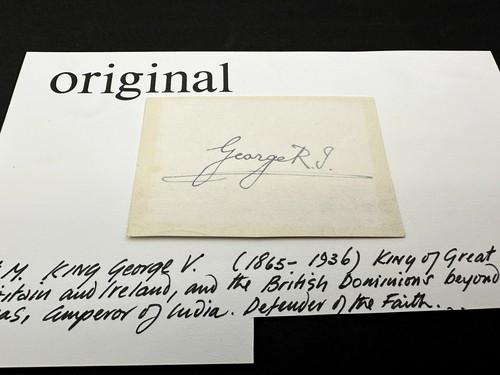 original
George R.I.
M. King George V. (1865-1936) King of Great
Britain and Ireland, and the British Dominions beyond
Emperor of India. Defender of the Faith.